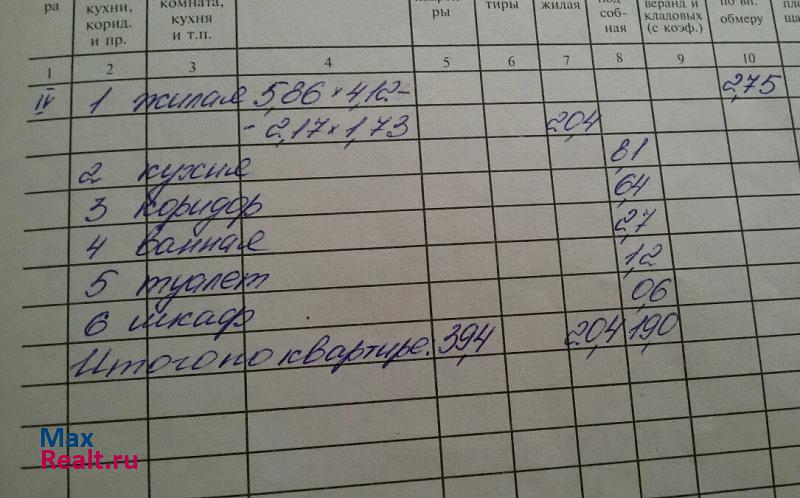 ра кухни, корид. и пр. комната, кухня и т.п. кварти- ры тиры жилая под- соб- ная веранд и кладовых (с коэф.) по вн. обмеру пло ща
1 2 3 4 5 6 7 8 9 10
IV 1 жилая 5,86 × 4,12 - 2,75
- 2,17 × 1,73 20,4
2 кухня 8,1
3 коридор 6,4
4 ванная 2,7
5 туалет 1,2
6 шкаф 0,6
Итого по квартире. 39,4 20,4 19,0
Max
Realt.ru